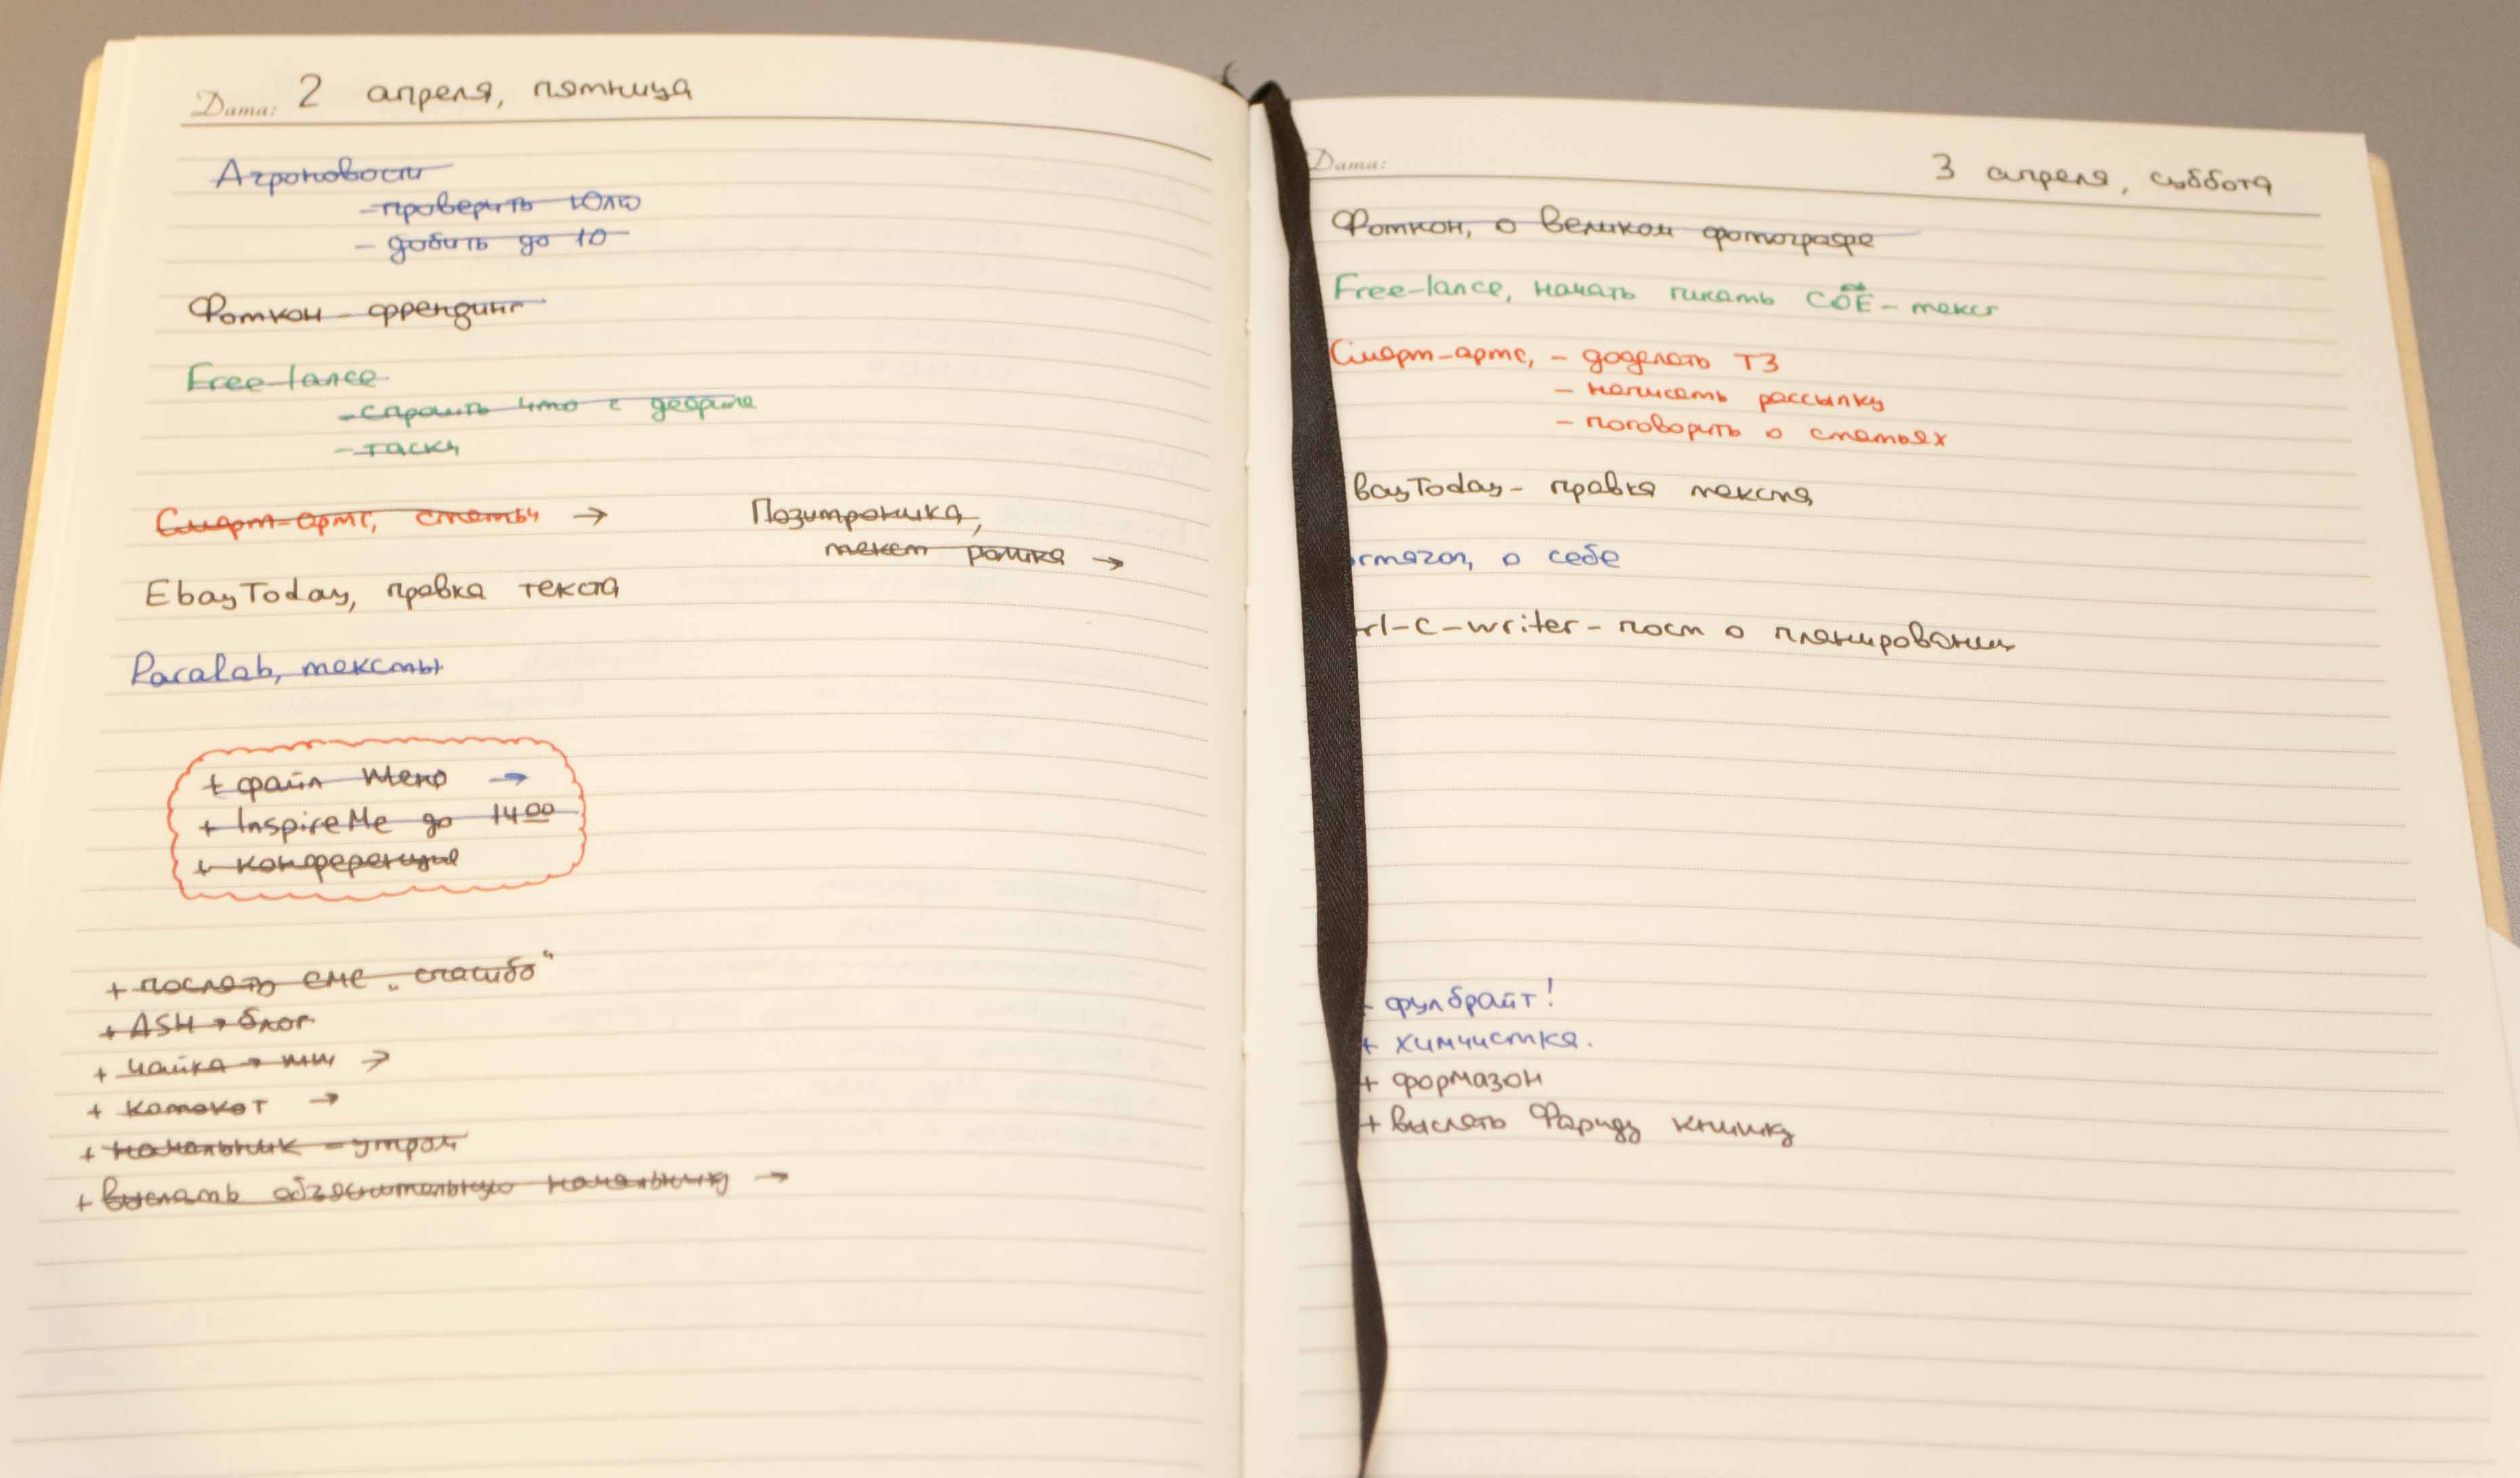 Дата: 2 апреля, пятница
Агроновости
- проверить Юлю
- добить до 10
Фоткон - френдинг
Free-lance
- спросить что с
- таски
Смарт-артс, статьи →
Позитроника,
текст ролика →
EbayToday, правка текста
Paralab, тексты
+ файл Жене →
+ InspireMe до 14 00
+ конференция
+ послать еще „спасибо“
+ ASH → блог
+ чайка → →
+ котокот →
+ начальник - утром
+ выслать объяснительную начальнику →
Дата: 3 апреля, суббота
Фоткон, о великом фотографе
Free-lance, начать писать СОЕ-текст
Смарт-артс, - доделать ТЗ
- написать рассылку
- поговорить о статьях
bayToday - правка текста
о себе
rl-c-writer - пост о планировании
+ фулбрайт!
+ химчистка.
+ формазон
+ выслать Фариду книжку